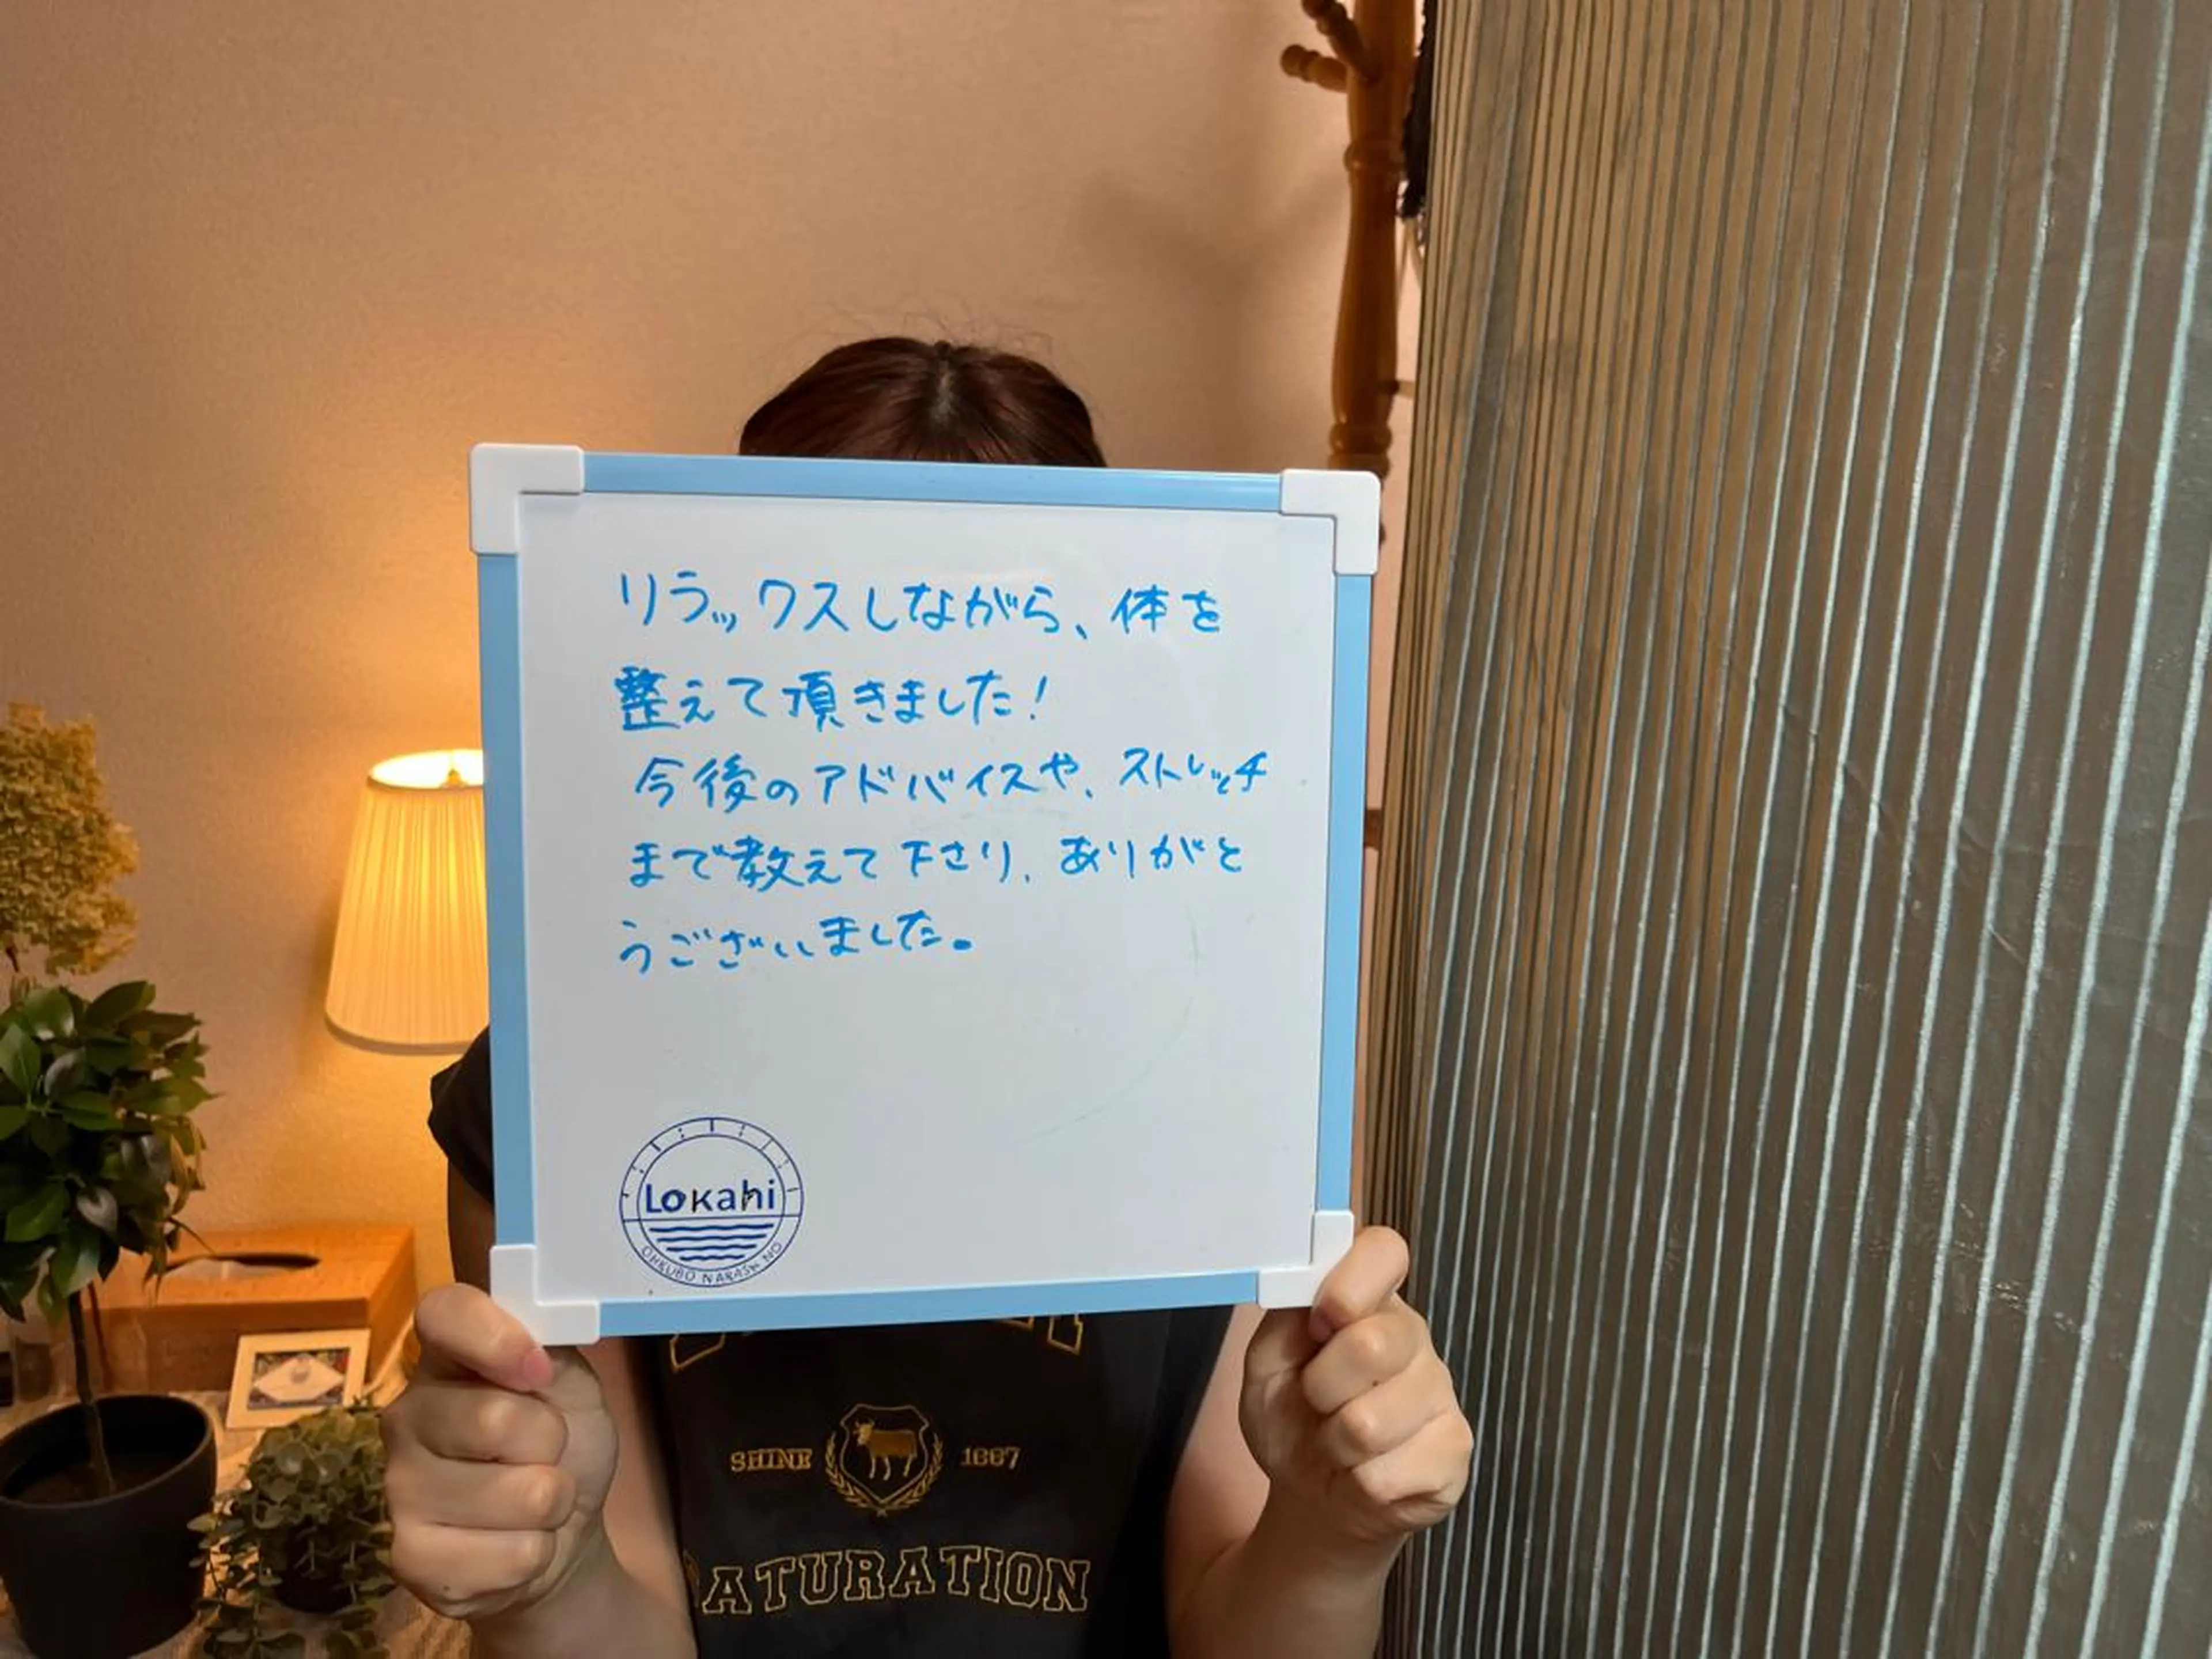 リラックスしながら、体を
整えて頂きました！
今後のアドバイスや、ストレッチ
まで教えて下さり、ありがと
うございました。
Lokahi
OHKUBO NARASHINO
SHINE 1887
SATURATION